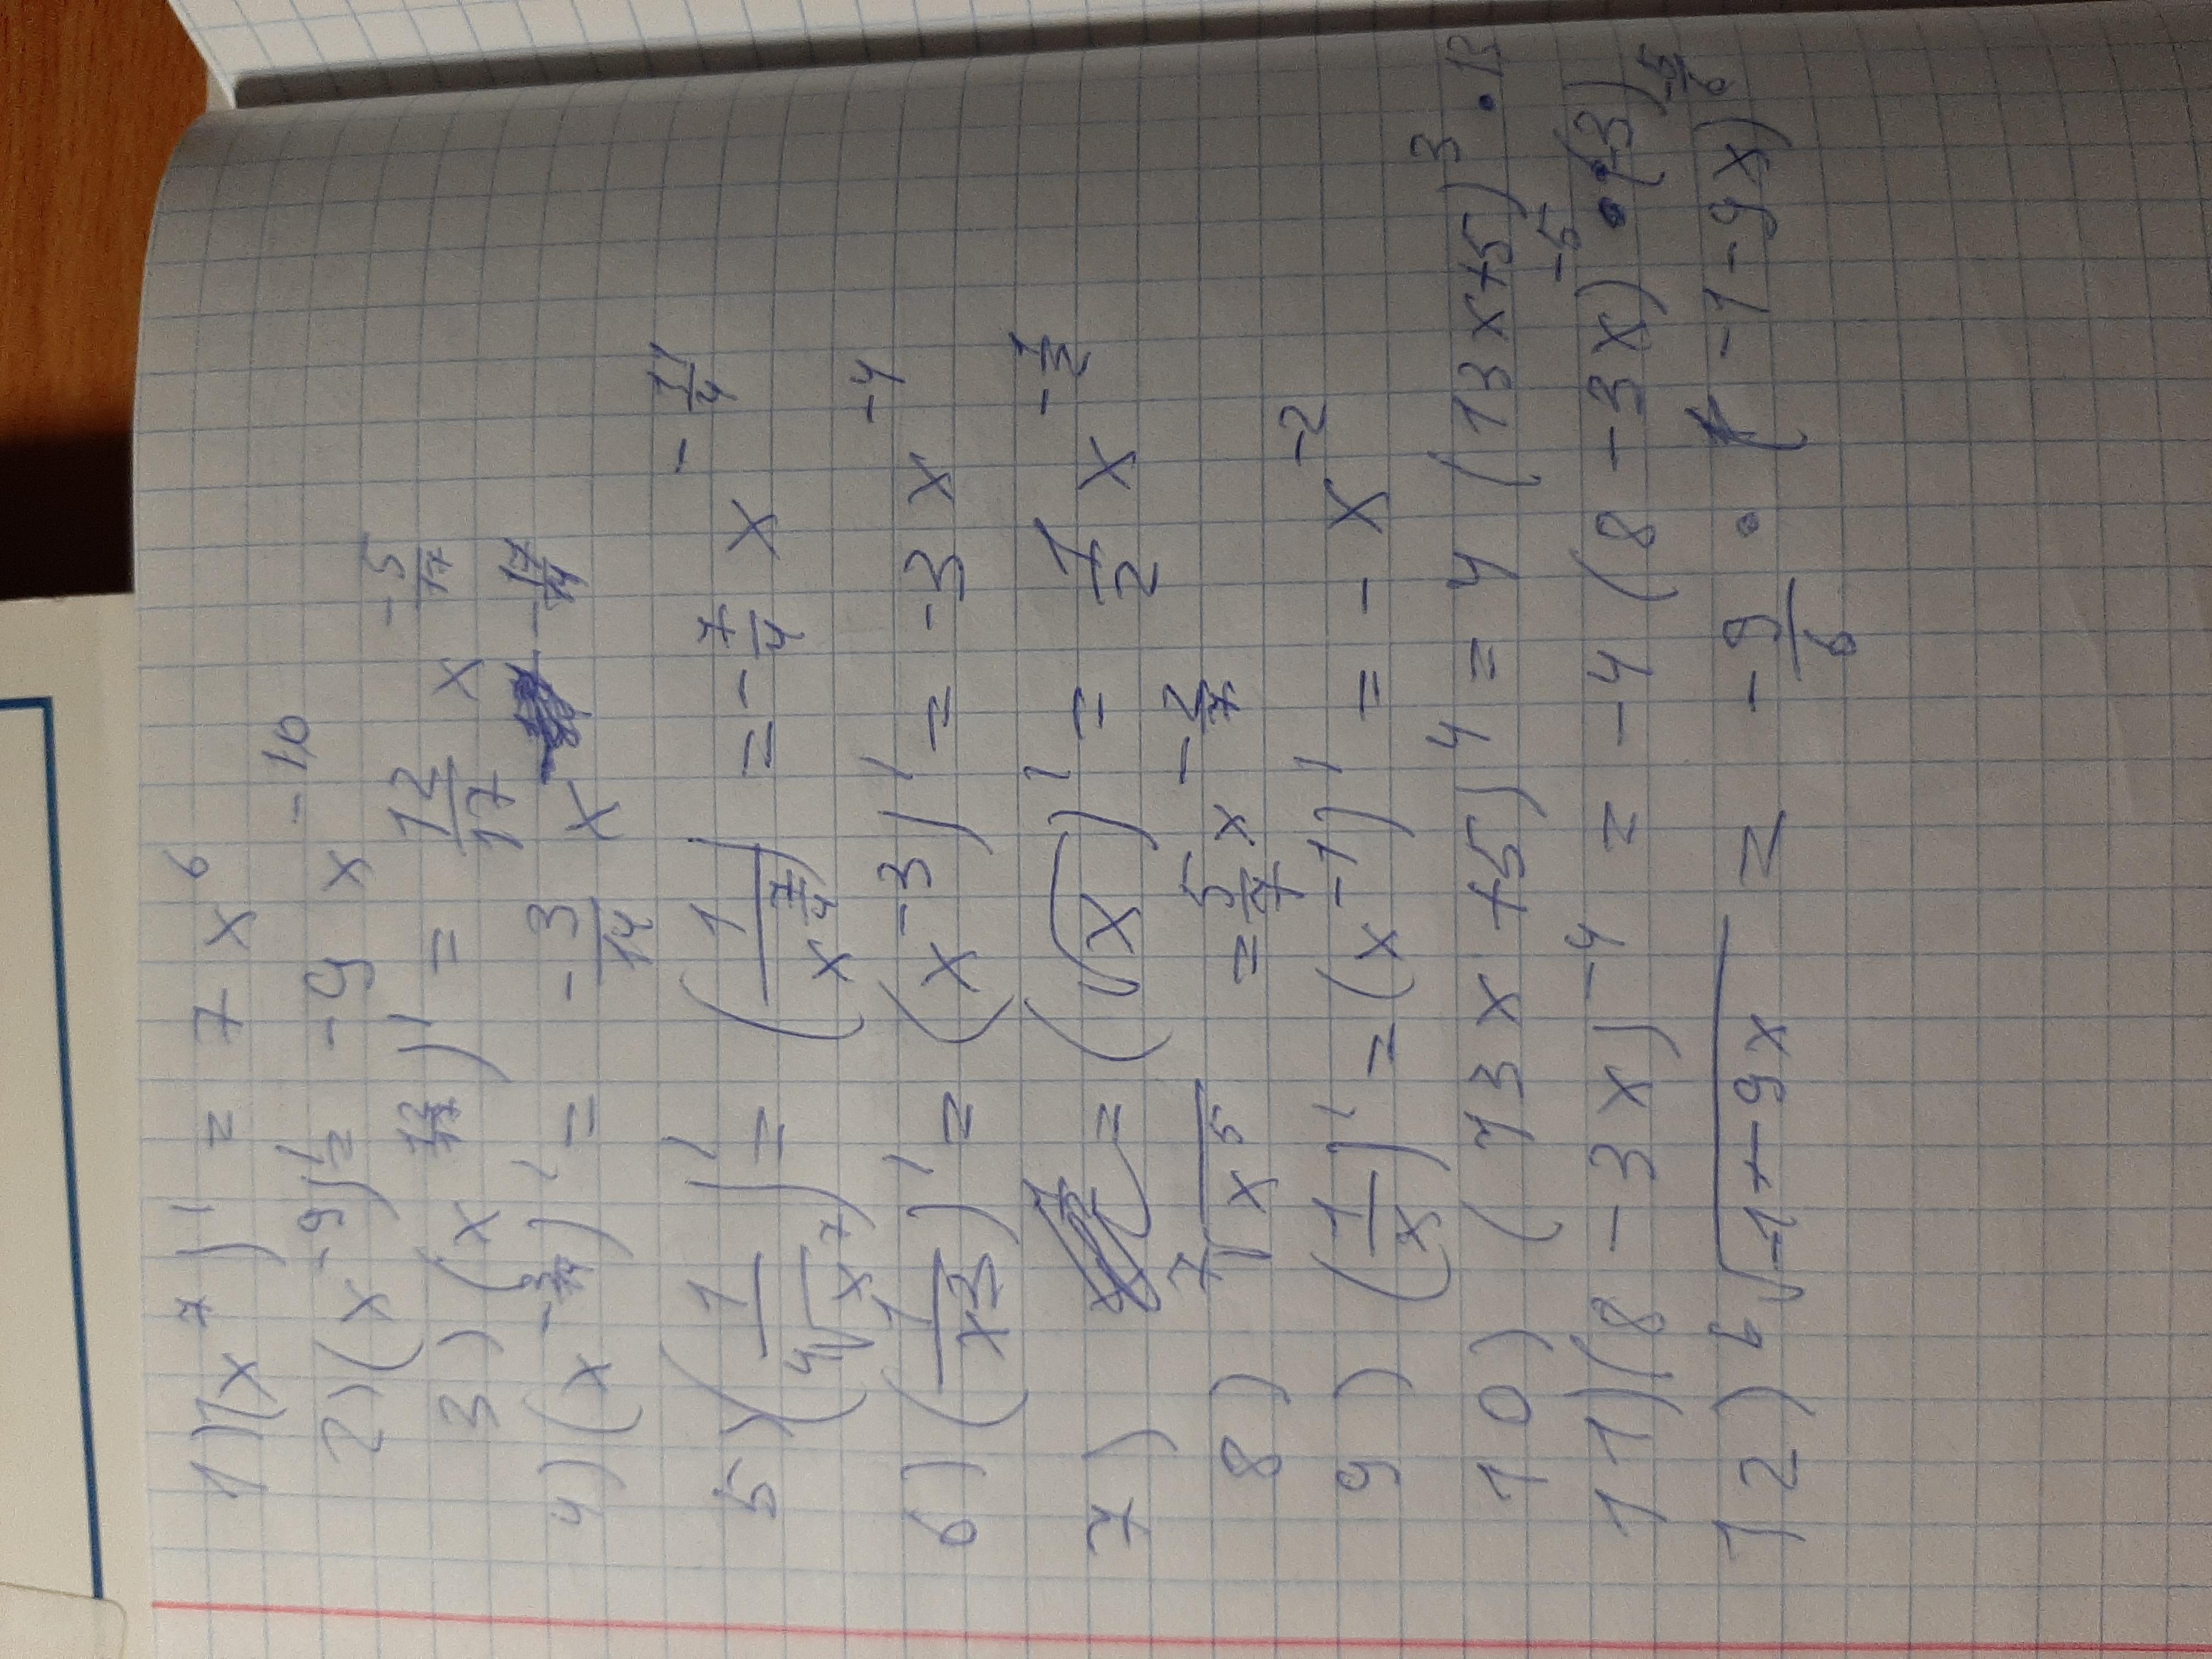 1) (x^7)' = 7x^6
2) (x^-9)' = -9x^-10
3) (x^12/17)' = 12/17 x^-5/17
4) (x^-3/14)' = -3/14 x^-17/14
5) (1/⁴√x^7)' = (1/x^7/4)' = -7/4 x^-11/4
6) (1/x^3)' = (x^-3)' = -3x^-4
7) = (√x)' = 1/2 x^-1/2
8) ⁷√x^5 = 5/7 x^-2/7
9) (1/x)' = (x^-1)' = -x^-2
10) (13x+5)^4 = 4(13x+5)^3 · 13
11) (8-3x)^-4 = -4(8-3x)^-5 · (-3)
12) ⁶√-1-9x = -9/6 · (-1-9x)^-5/6